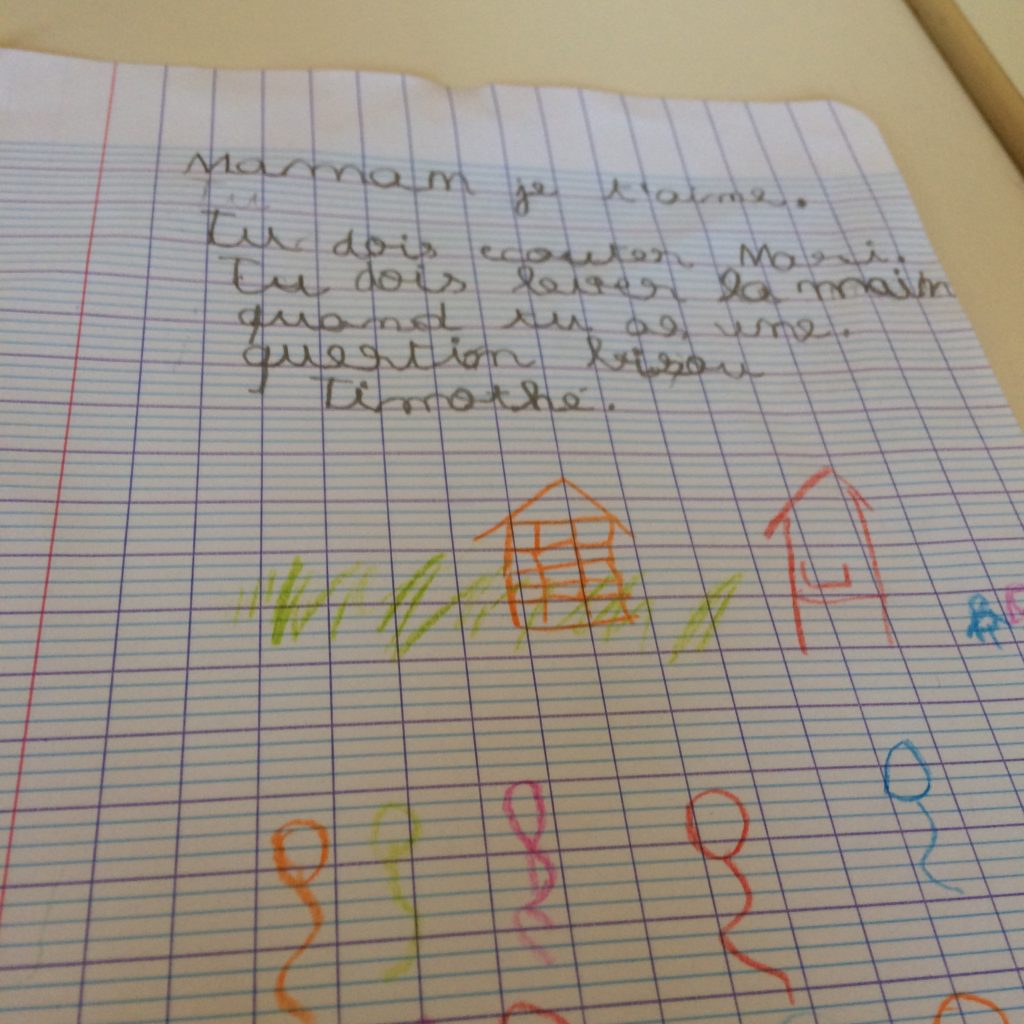 Mamam je t'aime.
Tu dois ecouter Mari.
Tu dois lever la main
quand tu as une.
question bisou
Timothé.